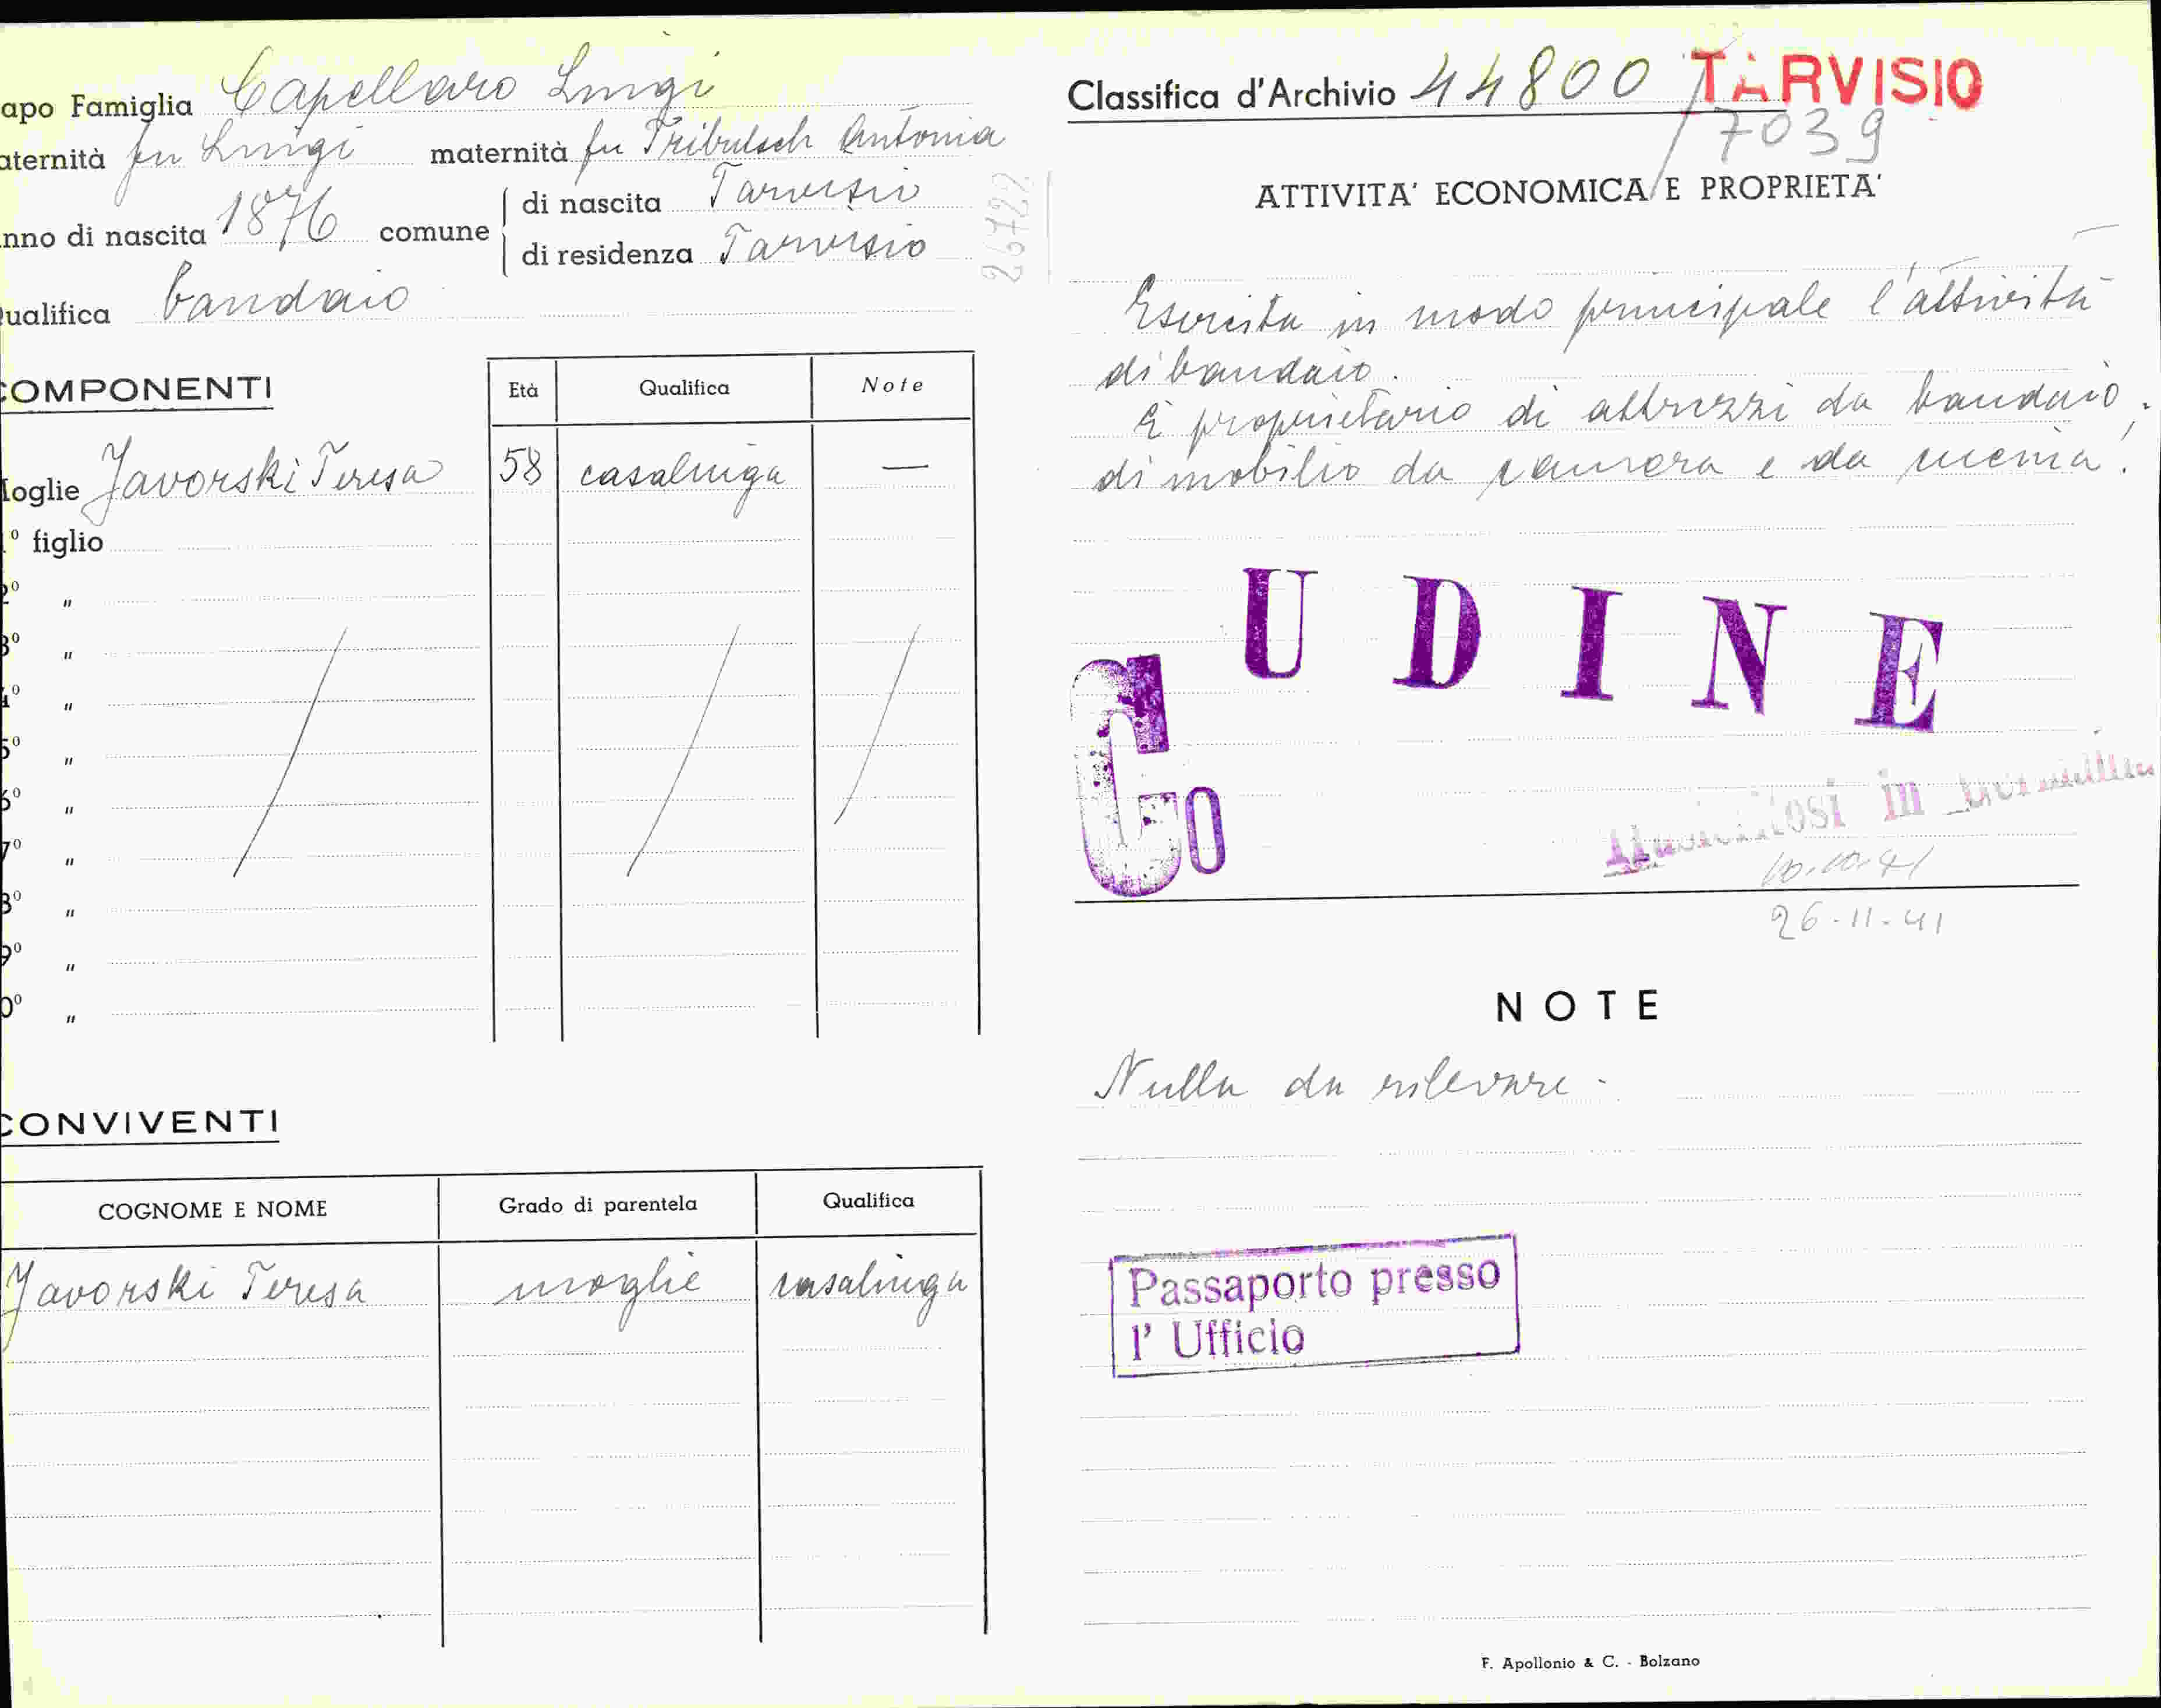 apo Famiglia Capellaro Luigi
aternità fu Luigi maternità fu Tributsch Antonia
nno di nascita 1876 comune di nascita Tarvisio
di residenza Tarvisio
ualifica bandaio
COMPONENTI Età Qualifica Note
oglie Javorski Teresa 58 casalinga —
1º figlio
2º "
3º "
4º "
5º "
6º "
7º "
8º "
9º "
0º "
CONVIVENTI
COGNOME E NOME Grado di parentela Qualifica
Javorski Teresa moglie casalinga
26722
Classifica d'Archivio 44800 TARVISIO
/ 7039
ATTIVITA' ECONOMICA E PROPRIETA'
Esercita in modo principale l'attività
di bandaio.
È proprietario di attrezzi da bandaio,
di mobilio da camera e da cucina.
UDINE
Go
in
10.10.41
26-11-41
NOTE
Nulla da rilevare.
Passaporto presso
l' Ufficio
F. Apollonio & C. - Bolzano